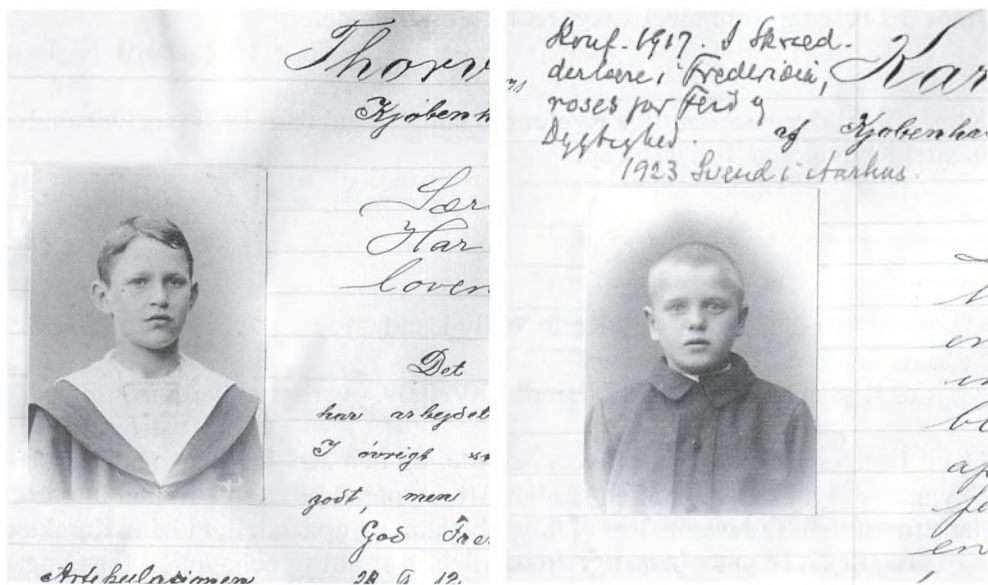 Thorv
Kjøbenh
Lær
Har
loven
Det
har arbejdet
I øvrigt
godt, men
God Fre
Artikulationen 28 9 12.
Konf. 1917. I Skræd-
derlære i Fredericia, Kar
roses for Flid og
Dygtighed. af Kjøbenhav
1923 Svend i Aarhus.
en